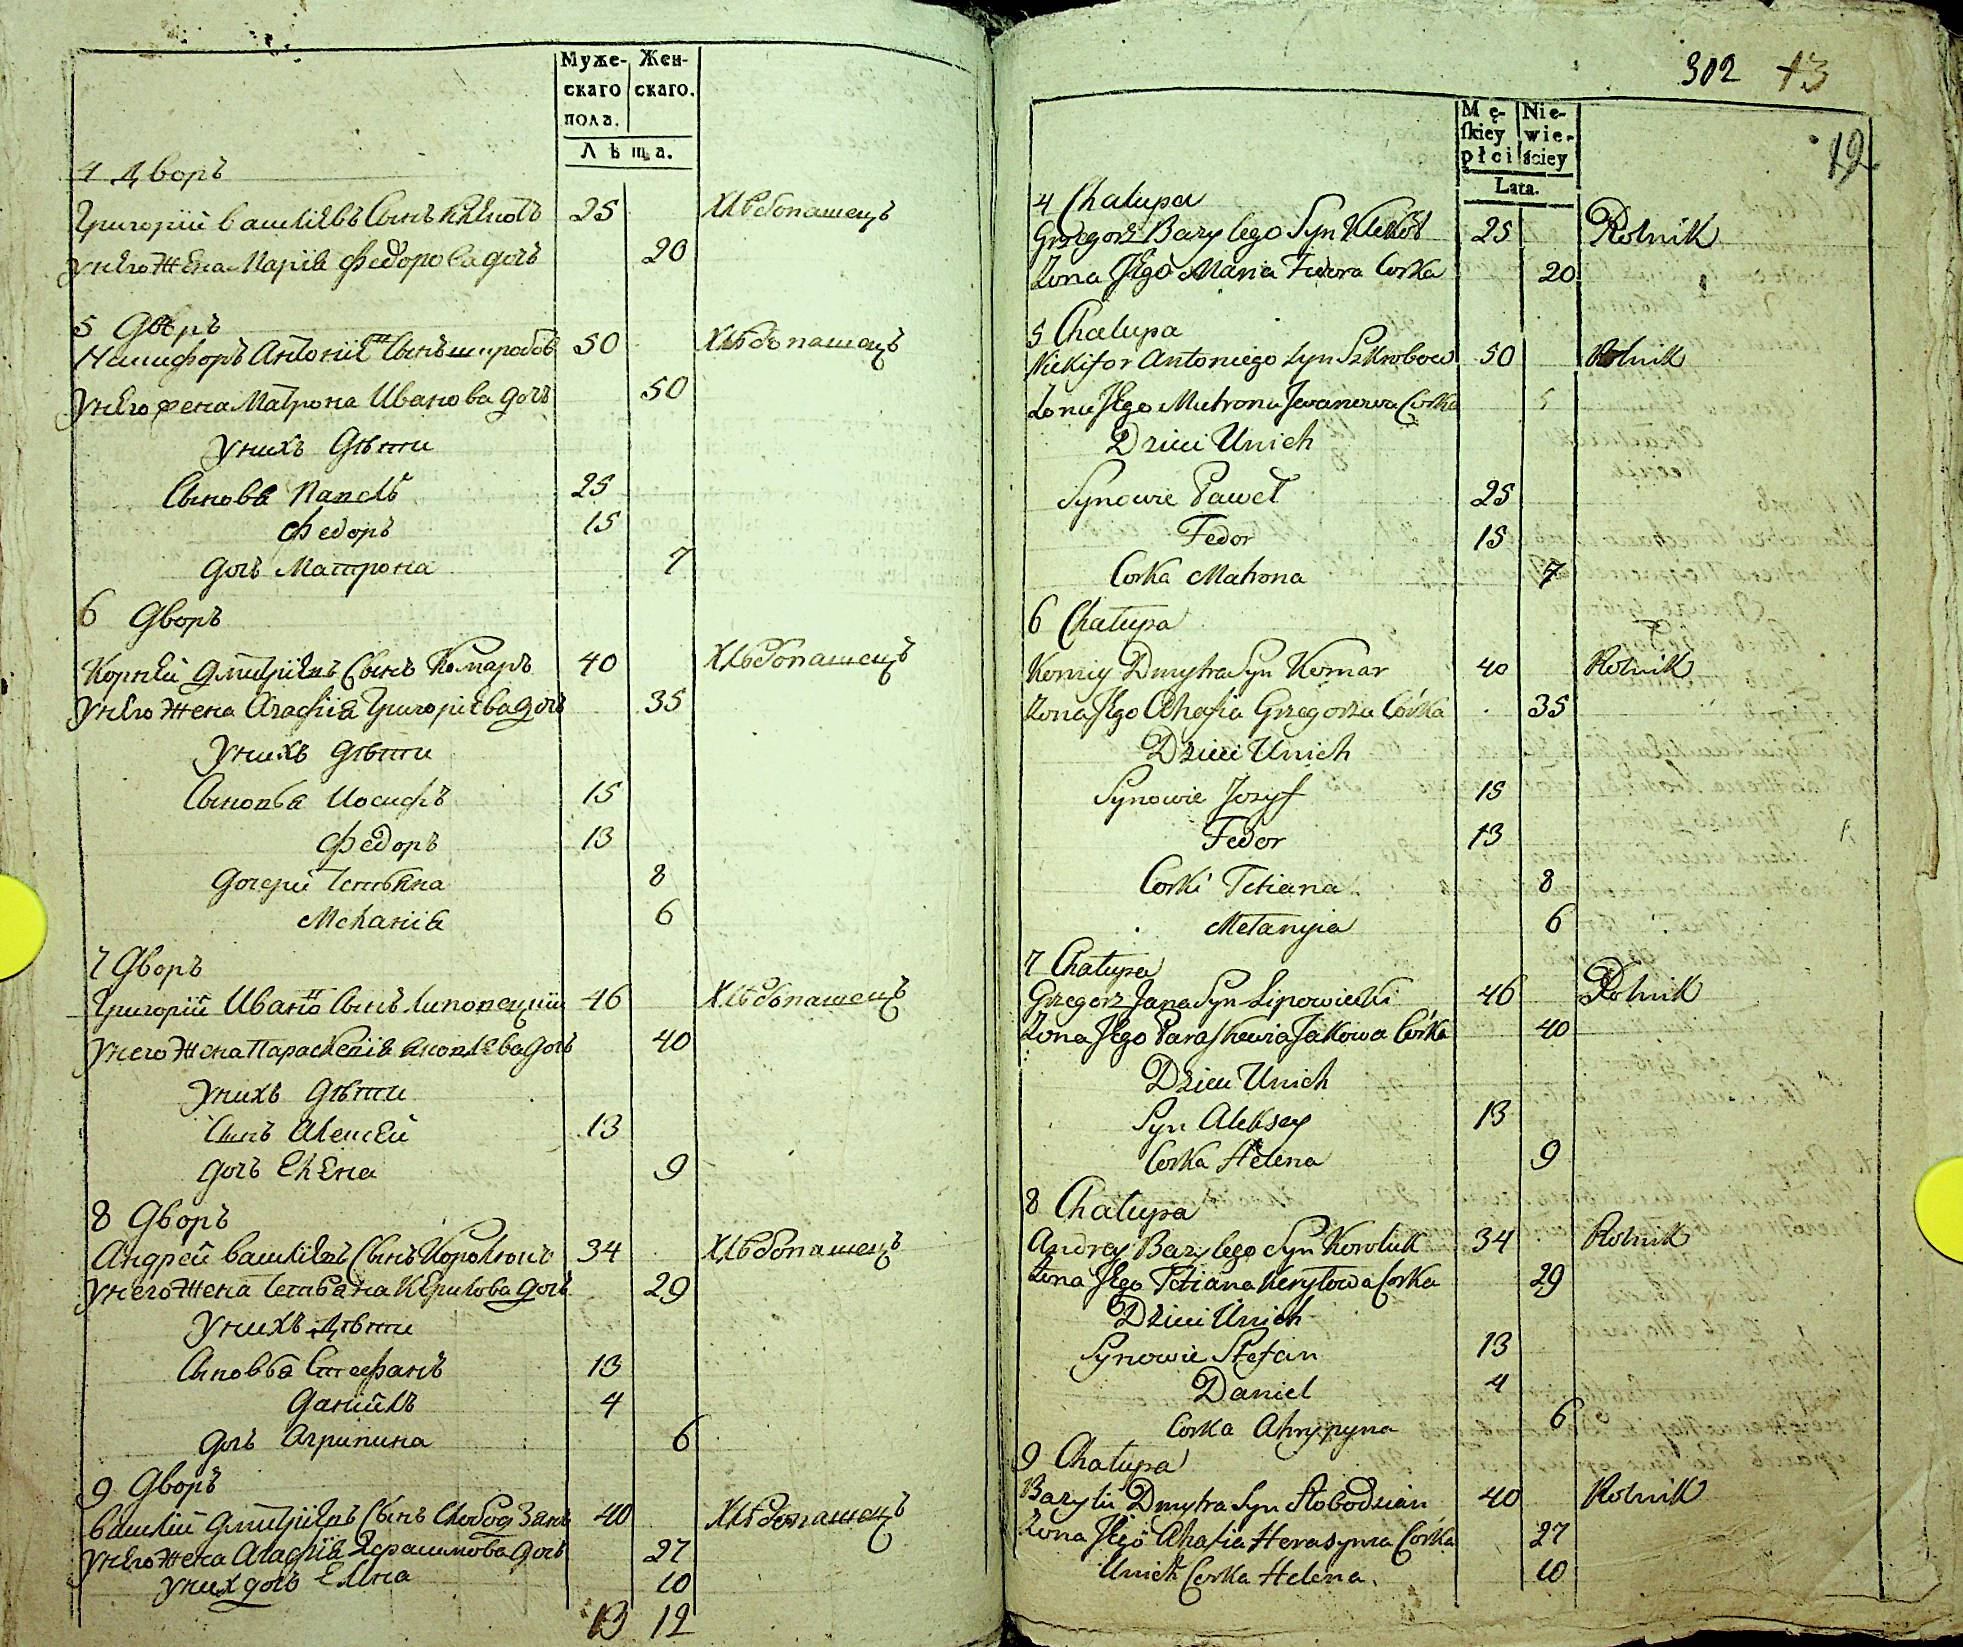 Муже- Жен-
скаго скаго.
пола.
Лѣта.
4 Дворъ
Григорiй Василiевъ Сынъ 25 Хлѣбопашецъ
у него Жена Марiя Федорова дочь 20
5 Дворъ
Никифоръ Антонiевъ Сынъ 50 Хлѣбопашецъ
у него жена Матрона Иванова дочь 50
у нихъ дѣти
Сыновя Павелъ 25
Федоръ 15
дочь Матрона 7
6 Дворъ
Корнѣй Дмитрiевъ Сынъ Комаръ 40 Хлѣбопашецъ
у него Жена Агафiя Григорiева дочь 35
у нихъ дѣти
Сыновья Иосифъ 15
Федоръ 13
дочери Татьяна 8
Меланiя 6
7 Дворъ
Григорiй Ивановъ Сынъ Липовецкiй 46 Хлѣбопашецъ
у него Жена Параскевiя Яковлева дочь 40
у нихъ дѣти
Сынъ Алексѣй 13
дочь Елена 9
8 Дворъ
Андрей Василiевъ Сынъ Королюкъ 34 Хлѣбопашецъ
у него Жена Татьяна Кирилова дочь 29
у нихъ Дѣти
Сыновья Стефанъ 13
Данiилъ 4
дочь Агрипина 6
9 Дворъ
Василiй Дмитрiевъ Сынъ Слободзянъ 40 Хлѣбопашецъ
у него Жена Агафiя Герасимова дочь 27
у них дочь Елена 10
13 12
302 13
12
Mę- Nie-
skiey wie-
płci ściey
Lata.
4 Chałupa
Grzegorz Bazylego Syn 25 Rolnik
Zona Jego Maria Fedora Corka 20
5 Chałupa
Nickifor Antoniego Syn Szkrobow 50 Rolnik
Zona Jego Matrona Jwanowa Corka 5
Dzieci Unich
Synowie Paweł 25
Fedor 15
Corka Matrona 7
6 Chałupa
Korniy Dmytra Syn Komar 40 Rolnik
Zona Jego Ahafia Grzegorza Córka 35
Dzieci Unich
Synowie Jozyf 15
Fedor 13
Corki Tetiana 8
Mełanyia 6
7 Chałupa
Grzegorz Jana Syn Lipowiecki 46 Rolnik
Zona Jego Paraskewia Jakowa Córka 40
Dzieci Unich
Syn Aleksey 13
Corka Helena 9
8 Chałupa
Andrey Bazylego Syn Koroluk 34 Rolnik
Zona Jego Tetiana Keryłowa Corka 29
Dzieci Unich
Synowie Stefan 13
Daniel 4
Corka Ahrypyna 6
9 Chałupa
Bazyli Dmytra Syn Słobodzian 40 Rolnik
Zona Jego Ahafia Herasyma Córka 27
Unich Corka Helena 10